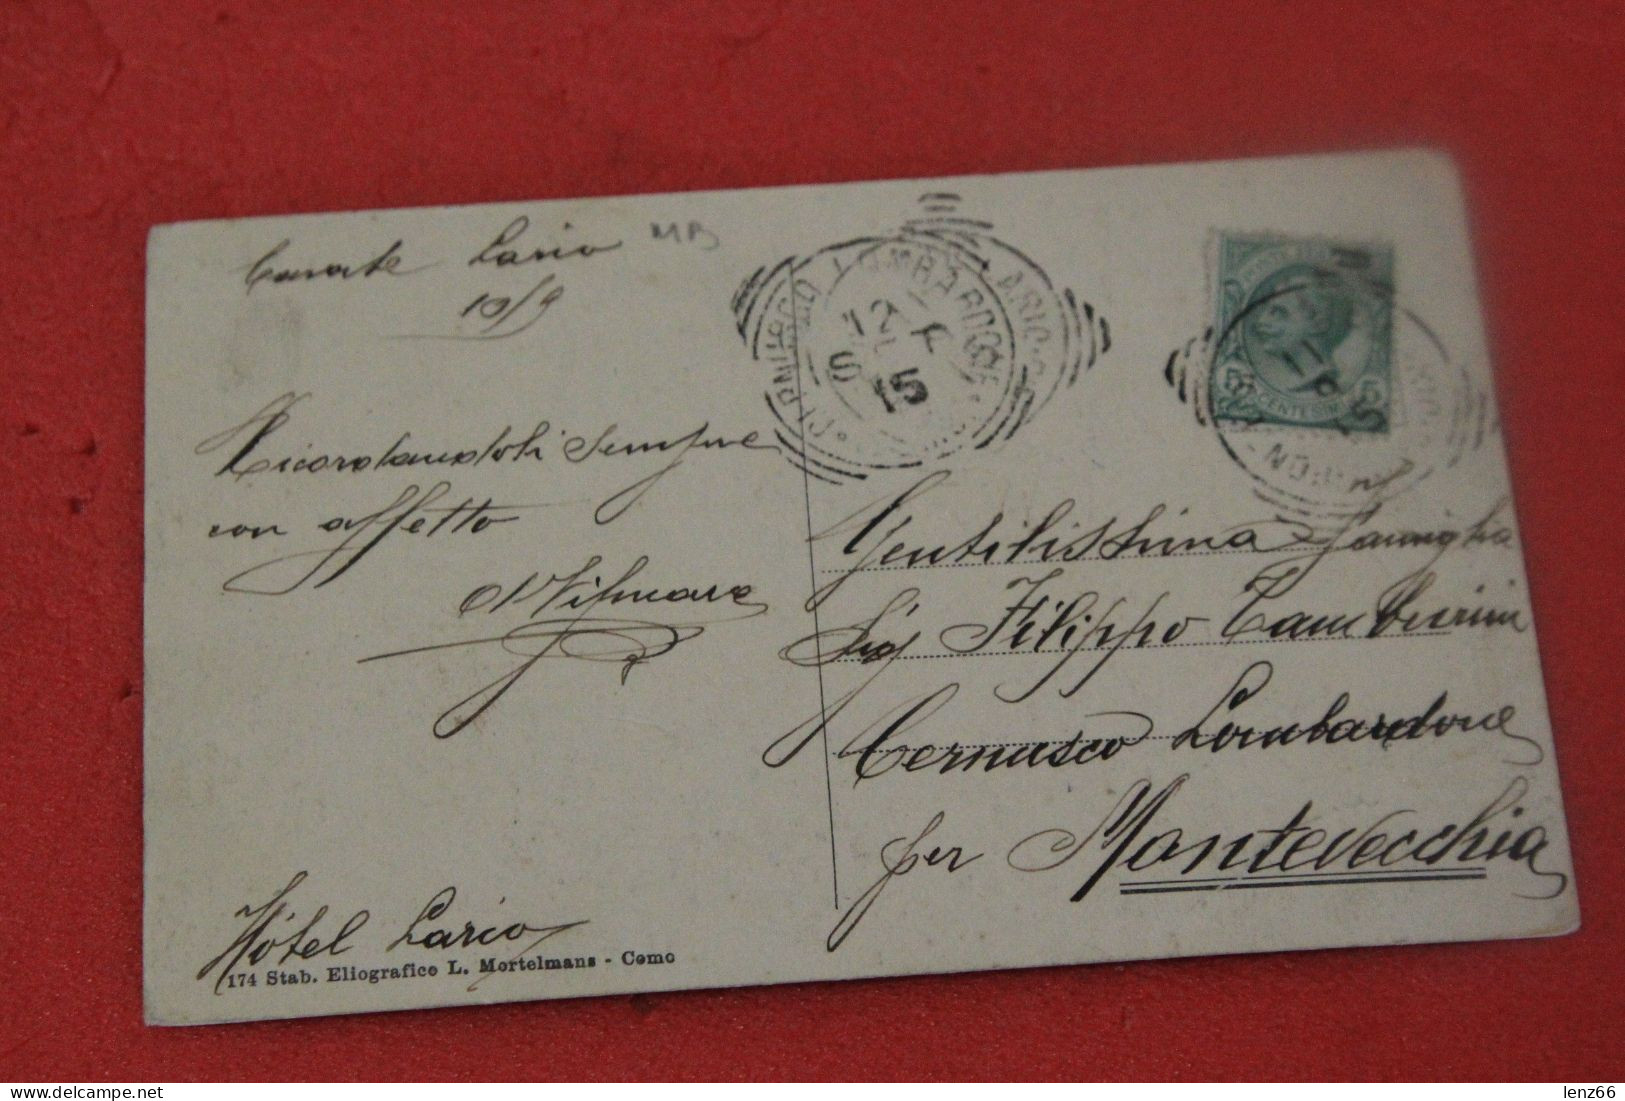 Carate Lario MB
10/9
Ricordandoli sempre
con affetto
Hôtel Lario
174 Stab. Eliografico L. Mortelmans - Como
CERNUSCO LOMBARDONE
5 CENTESIMI 5
Gentilissima Famiglia
Sig Filippo Tamburini
Cernusco Lombardone
per Montevecchia
lenz66